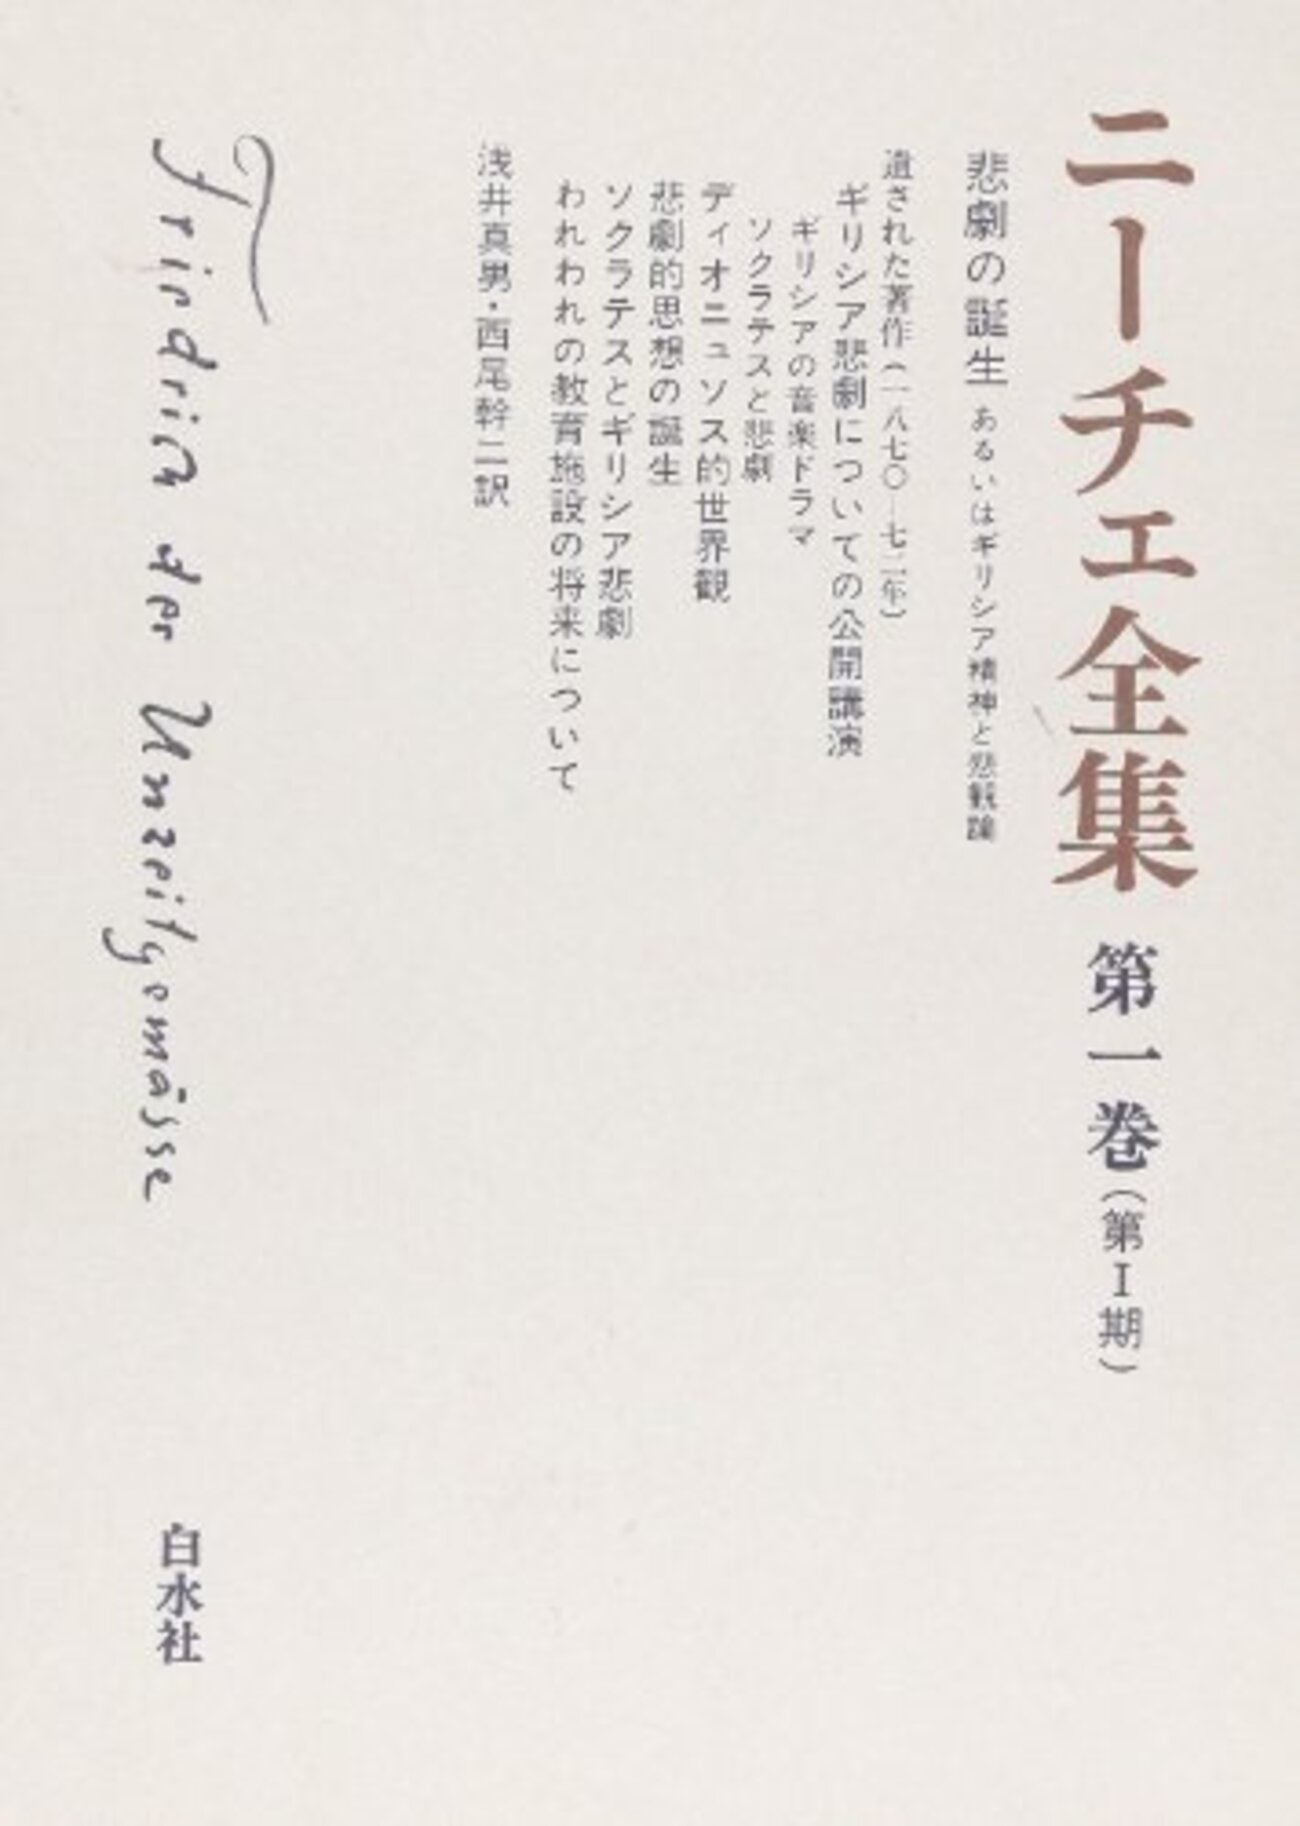 ニーチェ全集 第一巻（第Ⅰ期）
悲劇の誕生 あるいはギリシア精神と悲観論
遺された著作（一八七〇—七二年）
ギリシア悲劇についての公開講演
ギリシアの音楽ドラマ
ソクラテスと悲劇
ディオニュソス的世界観
悲劇的思想の誕生
ソクラテスとギリシア悲劇
われわれの教育施設の将来について
浅井真男・西尾幹二訳
Friedrich der Unzeitgemässe
白水社